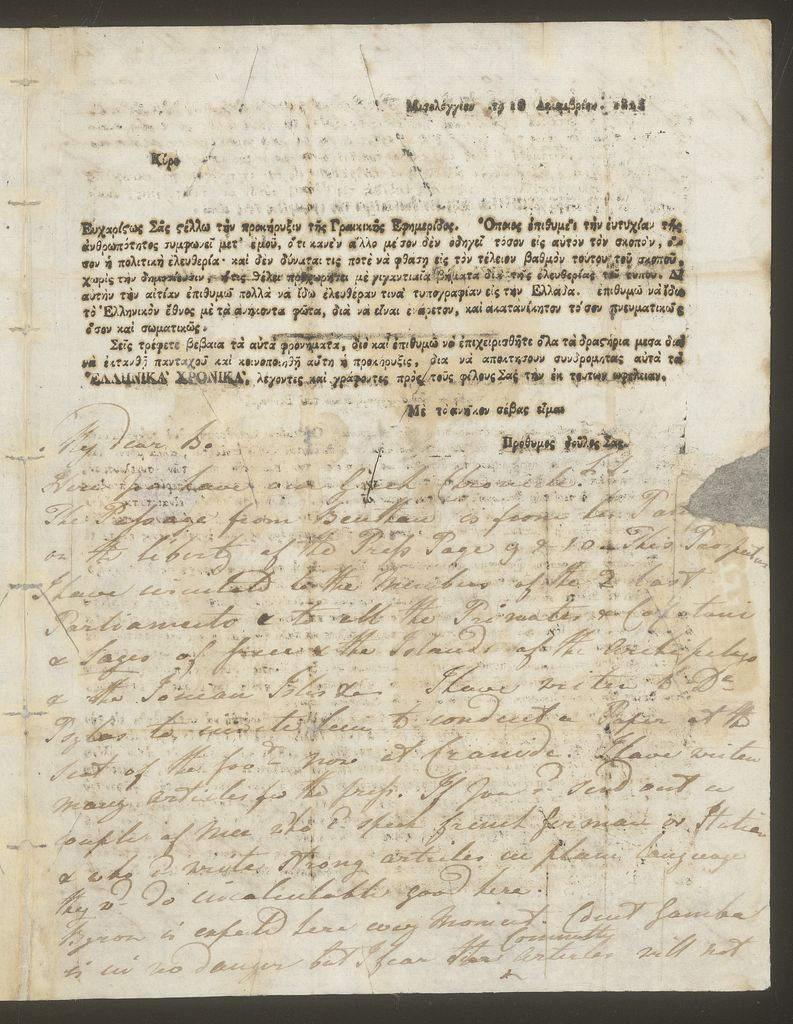 Μεσολόγγιον τῇ 18 Δεκεμβρίου. 1823
Κύριε
Εὐχαρίϛως Σᾶς ϛέλλω τὴν προκήρυξιν τῆς Γραικικῆς Ἐφημερίδος. Ὅποιος ἐπιθυμεῖ τὴν εὐτυχίαν τῆς
ἀνθρωπότητος συμφωνεῖ μετ' ἐμοῦ, ὅτι κανὲν ἄλλο μέσον δὲν ὁδηγεῖ τόσον εἰς αὐτὸν τὸν σκοπόν, ὅ-
σον ἡ πολιτικὴ ἐλευθερία· καὶ δὲν δύναται τις ποτὲ νὰ φθάσῃ εἰς τὸν τέλειον βαθμὸν τούτου τοῦ σκοποῦ,
χωρὶς τὴν δημοσίευσιν, ἥτις θέλει προχωρήσει μὲ γιγαντιαῖα βήματα διὰ τῆς ἐλευθερίας τοῦ τύπου. Δι'
αὐτὴν τὴν αἰτίαν ἐπιθυμῶ πολλὰ νὰ ἴδω ἐλευθέραν τινὰ τυπογραφίαν εἰς τὴν Ἑλλάδα. ἐπιθυμῶ νὰ ἴδω
τὸ Ἑλληνικὸν ἔθνος μὲ τὰ ἀνήκοντα φῶτα, διὰ νὰ εἶναι ἐνάρετον, καὶ ἀκατανίκητον τόσον πνευματικῶς
ὅσον καὶ σωματικῶς.
Σεῖς τρέφετε βέβαια τὰ αὐτὰ φρονήματα, διὸ καὶ ἐπιθυμῶ νὰ ἐπιχειρισθῆτε ὅλα τὰ δραϛήρια μέσα διὰ
νὰ ἐκτανθῇ πανταχοῦ καὶ κοινοποιηθῇ αὕτη ἡ προκήρυξις, διὰ νὰ ἀποκτήσουν συνδρομητὰς αὐτὰ τὰ
ἙΛΛΗΝΙΚΑ ΧΡΟΝΙΚΑ, λέγοντες καὶ γράφοντες πρὸς τοὺς φίλους Σας τὴν ἐκ τούτων ὠφέλειαν.
Μὲ τὸ ἀνῆκον σέβας εἶμαι
Πρόθυμος δοῦλος Σας.
My dear Bo
Here you have our Greek Chronicle.
The Passage from Bentham is from his
on the liberty of the Press Page 9 & 10. This Prospectus
I have circulated to the Members of the 2 last
Parliaments & to all the Primates & Capitani
& Sages of Greece & the Islands of the Archipelago
& the Ionian Isles &c I have written to Dr
to invite him to conduct a Paper at the
seat of the Govt now at Cranide. I have written
many articles for the press. If you cd send out a
couple of Men who cd speak french German or Italian
& who cd write strong articles in plain language
they wd do incalculable good here.
Byron is expected here every Moment Count Gamba
is in no danger but I fear the Committee articles will not